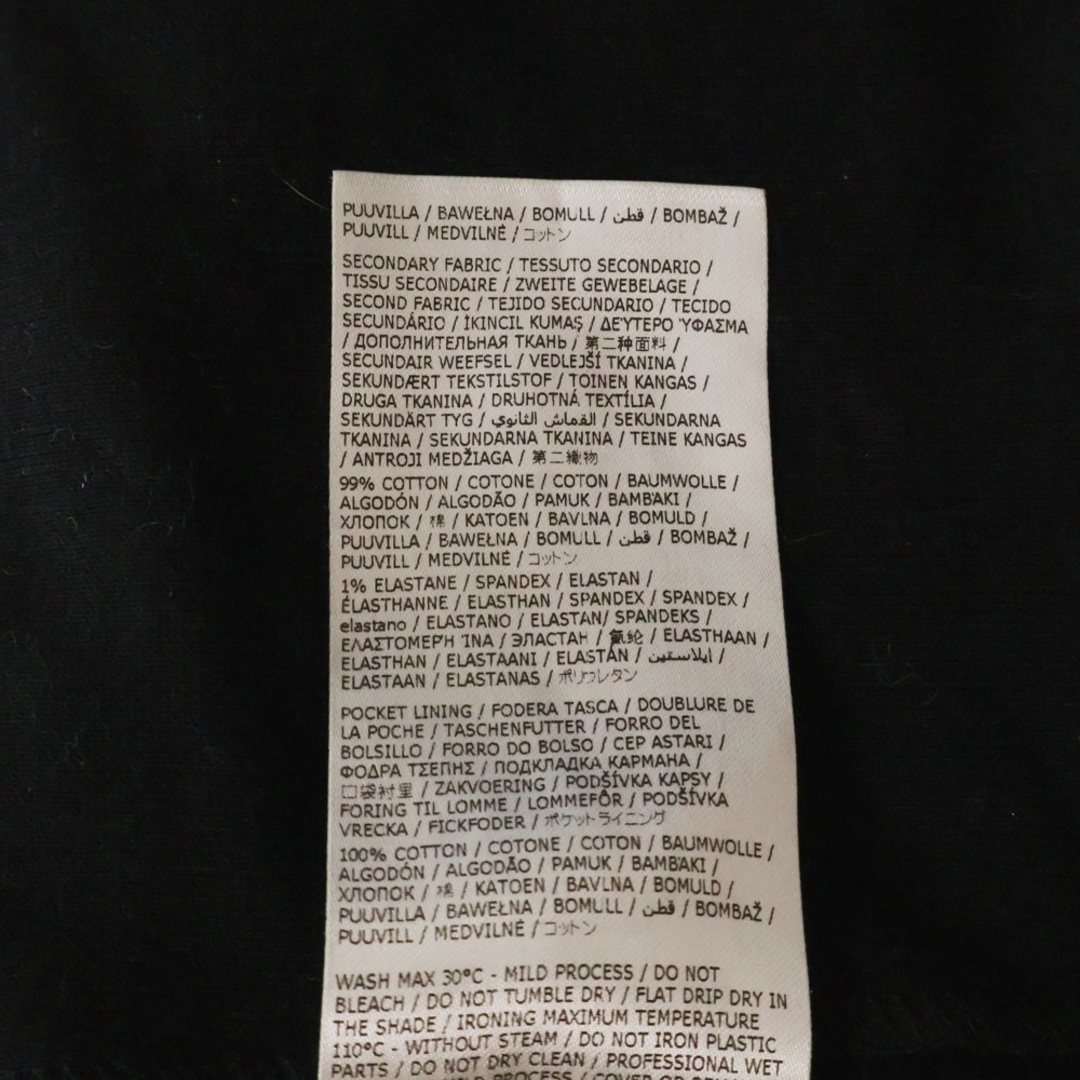 PUUVILLA / BAWEŁNA / BOMULL / قطن / BOMBAŽ /
PUUVILL / MEDVILNĖ / コットン
SECONDARY FABRIC / TESSUTO SECONDARIO /
TISSU SECONDAIRE / ZWEITE GEWEBELAGE /
SECOND FABRIC / TEJIDO SECUNDARIO / TECIDO
SECUNDÁRIO / İKINCIL KUMAŞ / ΔΕΎΤΕΡΟ ΎΦΑΣΜΑ
/ ДОПОЛНИТЕЛЬНАЯ ТКАНЬ / 第二种面料 /
SECUNDAIR WEEFSEL / VEDLEJŠÍ TKANINA /
SEKUNDÆRT TEKSTILSTOF / TOINEN KANGAS /
DRUGA TKANINA / DRUHOTNÁ TEXTÍLIA /
SEKUNDÄRT TYG / القماش الثانوي / SEKUNDARNA
TKANINA / SEKUNDARNA TKANINA / TEINE KANGAS
/ ANTROJI MEDŽIAGA / 第二織物
99% COTTON / COTONE / COTON / BAUMWOLLE /
ALGODÓN / ALGODÃO / PAMUK / ΒΑΜΒΆΚΙ /
ХЛОПОК / 棉 / KATOEN / BAVLNA / BOMULD /
PUUVILLA / BAWEŁNA / BOMULL / قطن / BOMBAŽ /
PUUVILL / MEDVILNĖ / コットン
1% ELASTANE / SPANDEX / ELASTAN /
ÉLASTHANNE / ELASTHAN / SPANDEX / SPANDEX /
elastano / ELASTANO / ELASTAN/ SPANDEKS /
ΕΛΑΣΤΟΜΕΡΉ ΊΝΑ / ЭЛАСТАН / 氨纶 / ELASTHAAN /
ELASTHAN / ELASTAANI / ELASTÁN / إيلاستين /
ELASTAAN / ELASTANAS / ポリウレタン
POCKET LINING / FODERA TASCA / DOUBLURE DE
LA POCHE / TASCHENFUTTER / FORRO DEL
BOLSILLO / FORRO DO BOLSO / CEP ASTARI /
ΦΟΔΡΑ ΤΣΕΠΗΣ / ПОДКЛАДКА КАРМАНА /
口袋衬里 / ZAKVOERING / PODŠÍVKA KAPSY /
FORING TIL LOMME / LOMMEFÔR / PODŠÍVKA
VRECKA / FICKFODER / ポケットライニング
100% COTTON / COTONE / COTON / BAUMWOLLE /
ALGODÓN / ALGODÃO / PAMUK / ΒΑΜΒΆΚΙ /
ХЛОПОК / 棉 / KATOEN / BAVLNA / BOMULD /
PUUVILLA / BAWEŁNA / BOMULL / قطن / BOMBAŽ /
PUUVILL / MEDVILNĖ / コットン
WASH MAX 30°C - MILD PROCESS / DO NOT
BLEACH / DO NOT TUMBLE DRY / FLAT DRIP DRY IN
THE SHADE / IRONING MAXIMUM TEMPERATURE
110°C - WITHOUT STEAM / DO NOT IRON PLASTIC
PARTS / DO NOT DRY CLEAN / PROFESSIONAL WET
PROCESS / COVER OR